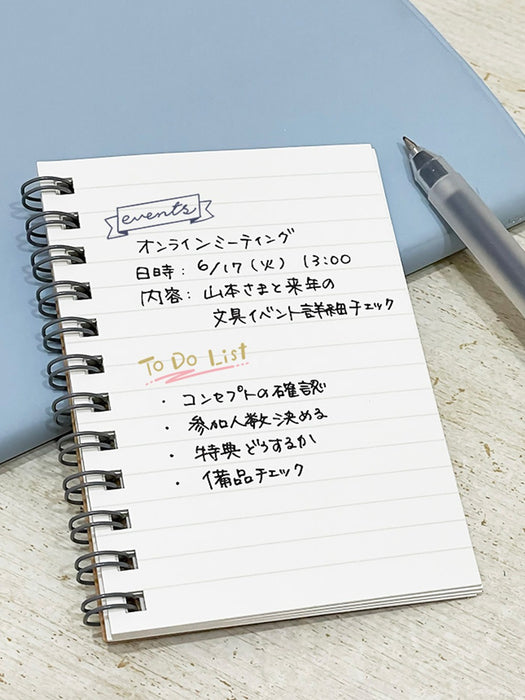 events
オンラインミーティング
日時: 6/17(火) 13:00
内容: 山本さまと来年の
文具イベント詳細チェック
To Do List
・コンセプトの確認
・参加人数決める
・特典どうするか
・備品チェック